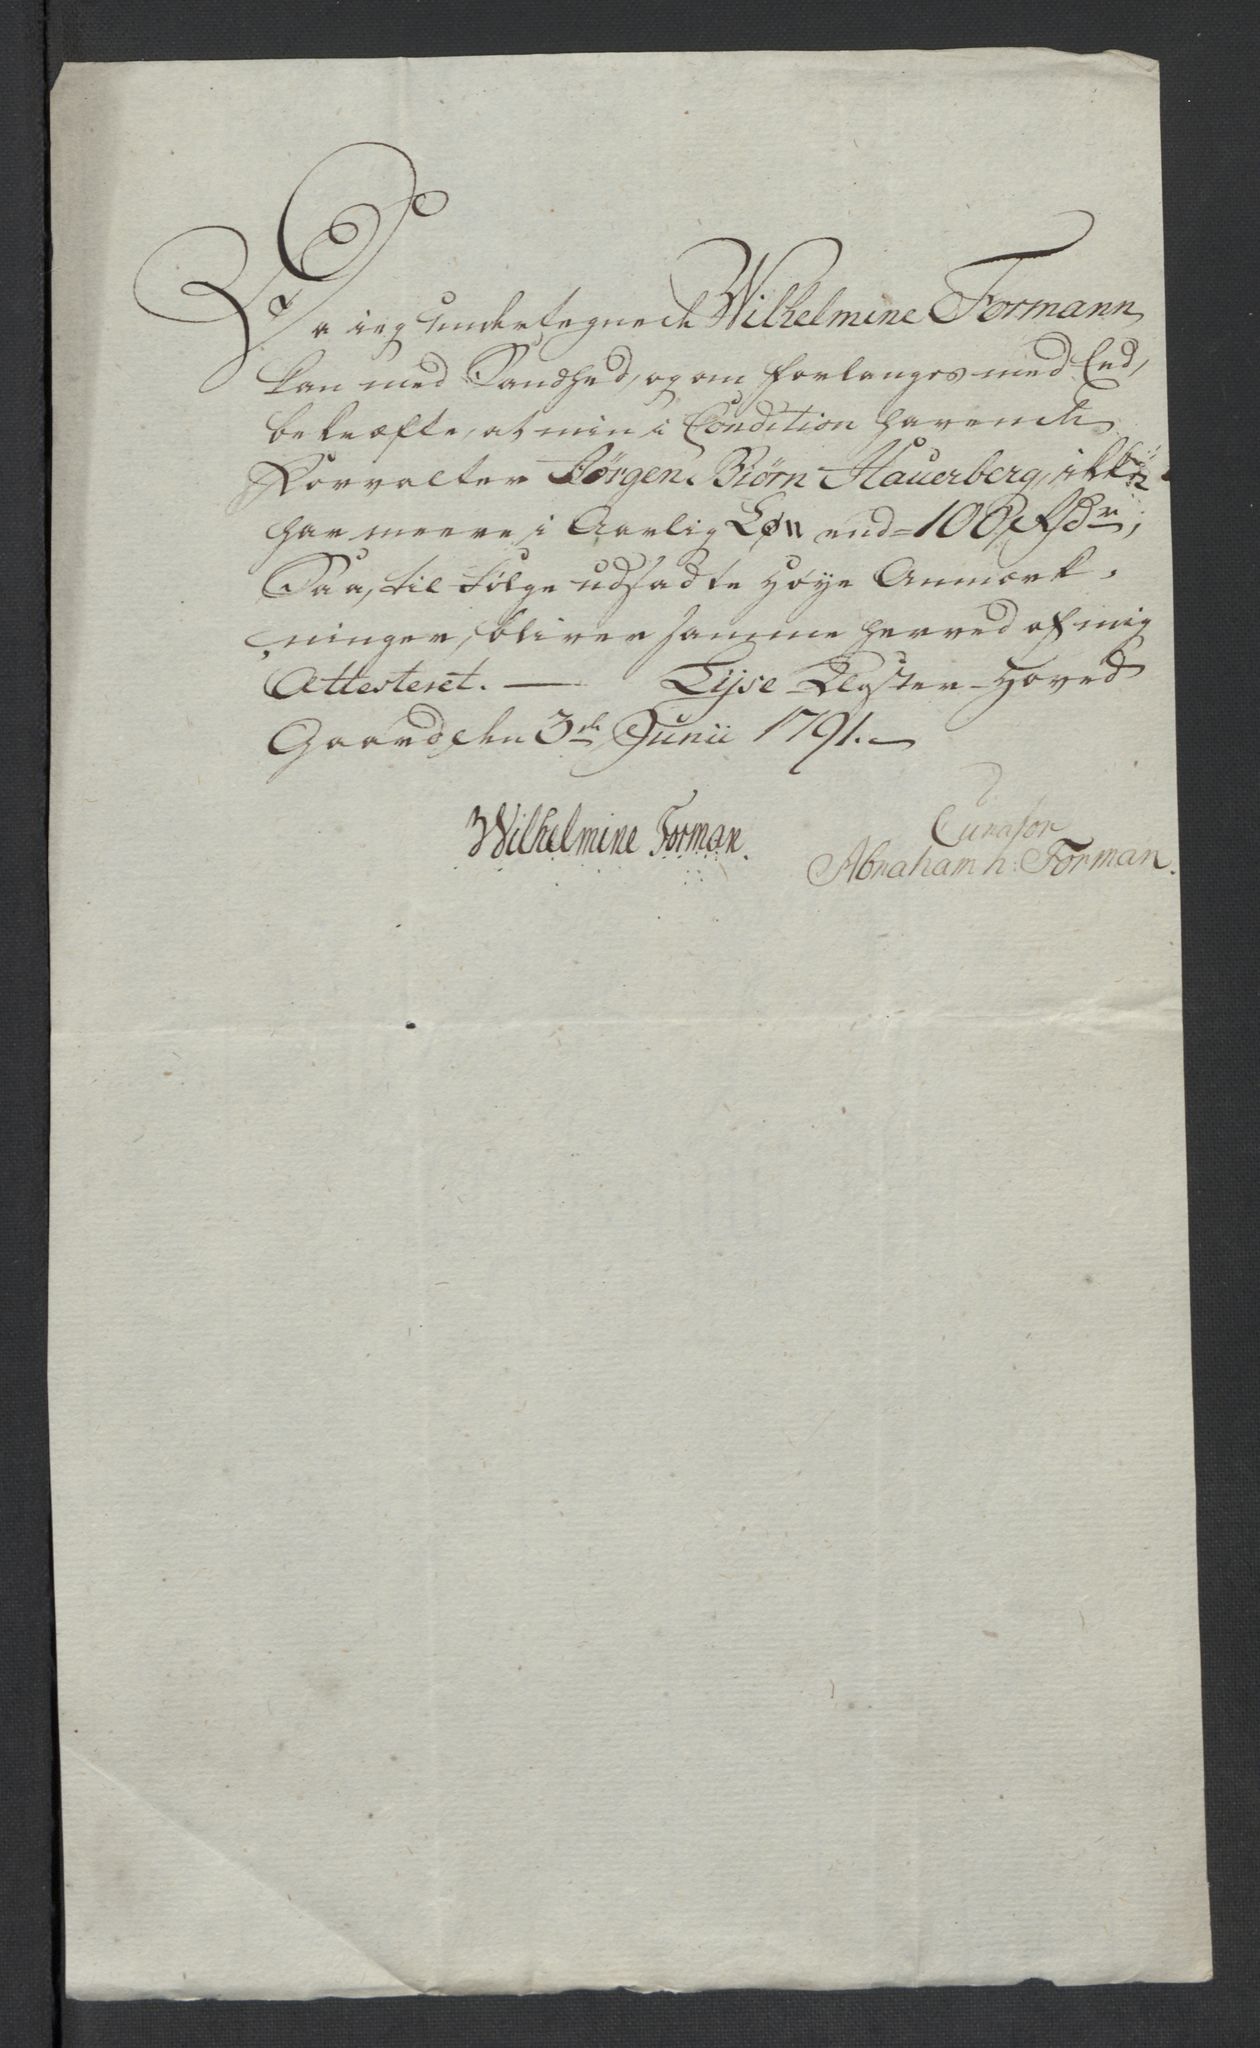 Da ieg undertegnede Wilhelmine Formann
kan med Sandhed, og om forlanges med Eed,
bekræfte, at min i Condition havende
Forvalter Jörgen Biørn Hauerberg, ikke
har meere i Aarlig Løn end 100 Rdr,
Saa, til Følge udstædte Høye Anmærk-
ninger, bliver samme herved af mig
Attesteret. — Lyse Kloster-Hoved
Gaard den 3de Junii 1791. —
Wilhelmine Forman.
Curator
Abraham h: Forman.